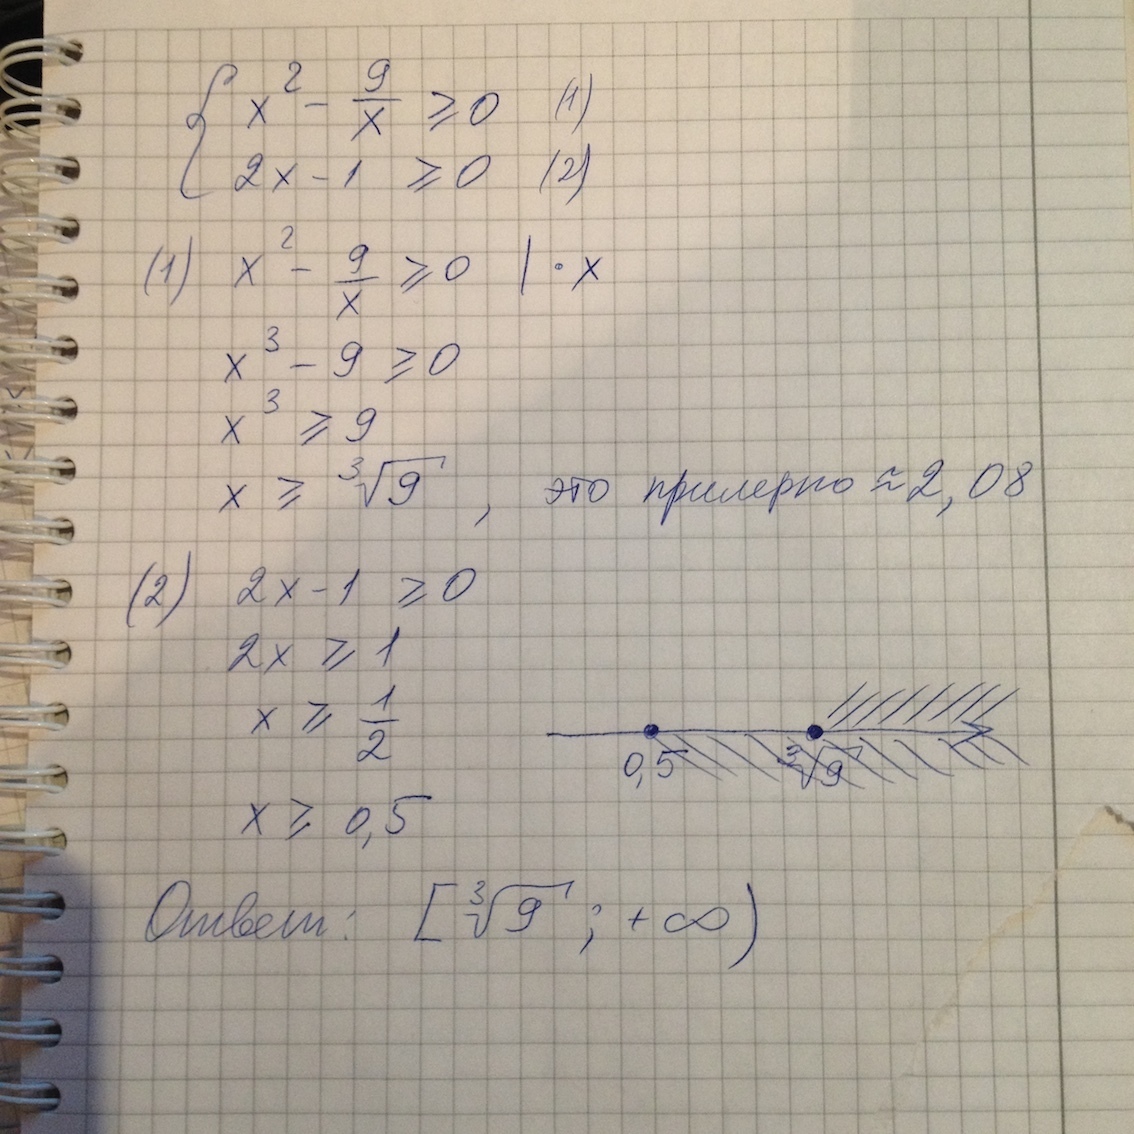 { x² - 9/x ≥ 0 (1)
2x - 1 ≥ 0 (2)
(1) x² - 9/x ≥ 0 | · x
x³ - 9 ≥ 0
x³ ≥ 9
x ≥ ³√9 , это примерно ≈ 2,08
(2) 2x - 1 ≥ 0
2x ≥ 1
x ≥ 1/2
0,5 ³√9
x ≥ 0,5
Ответ: [³√9 ; +∞)